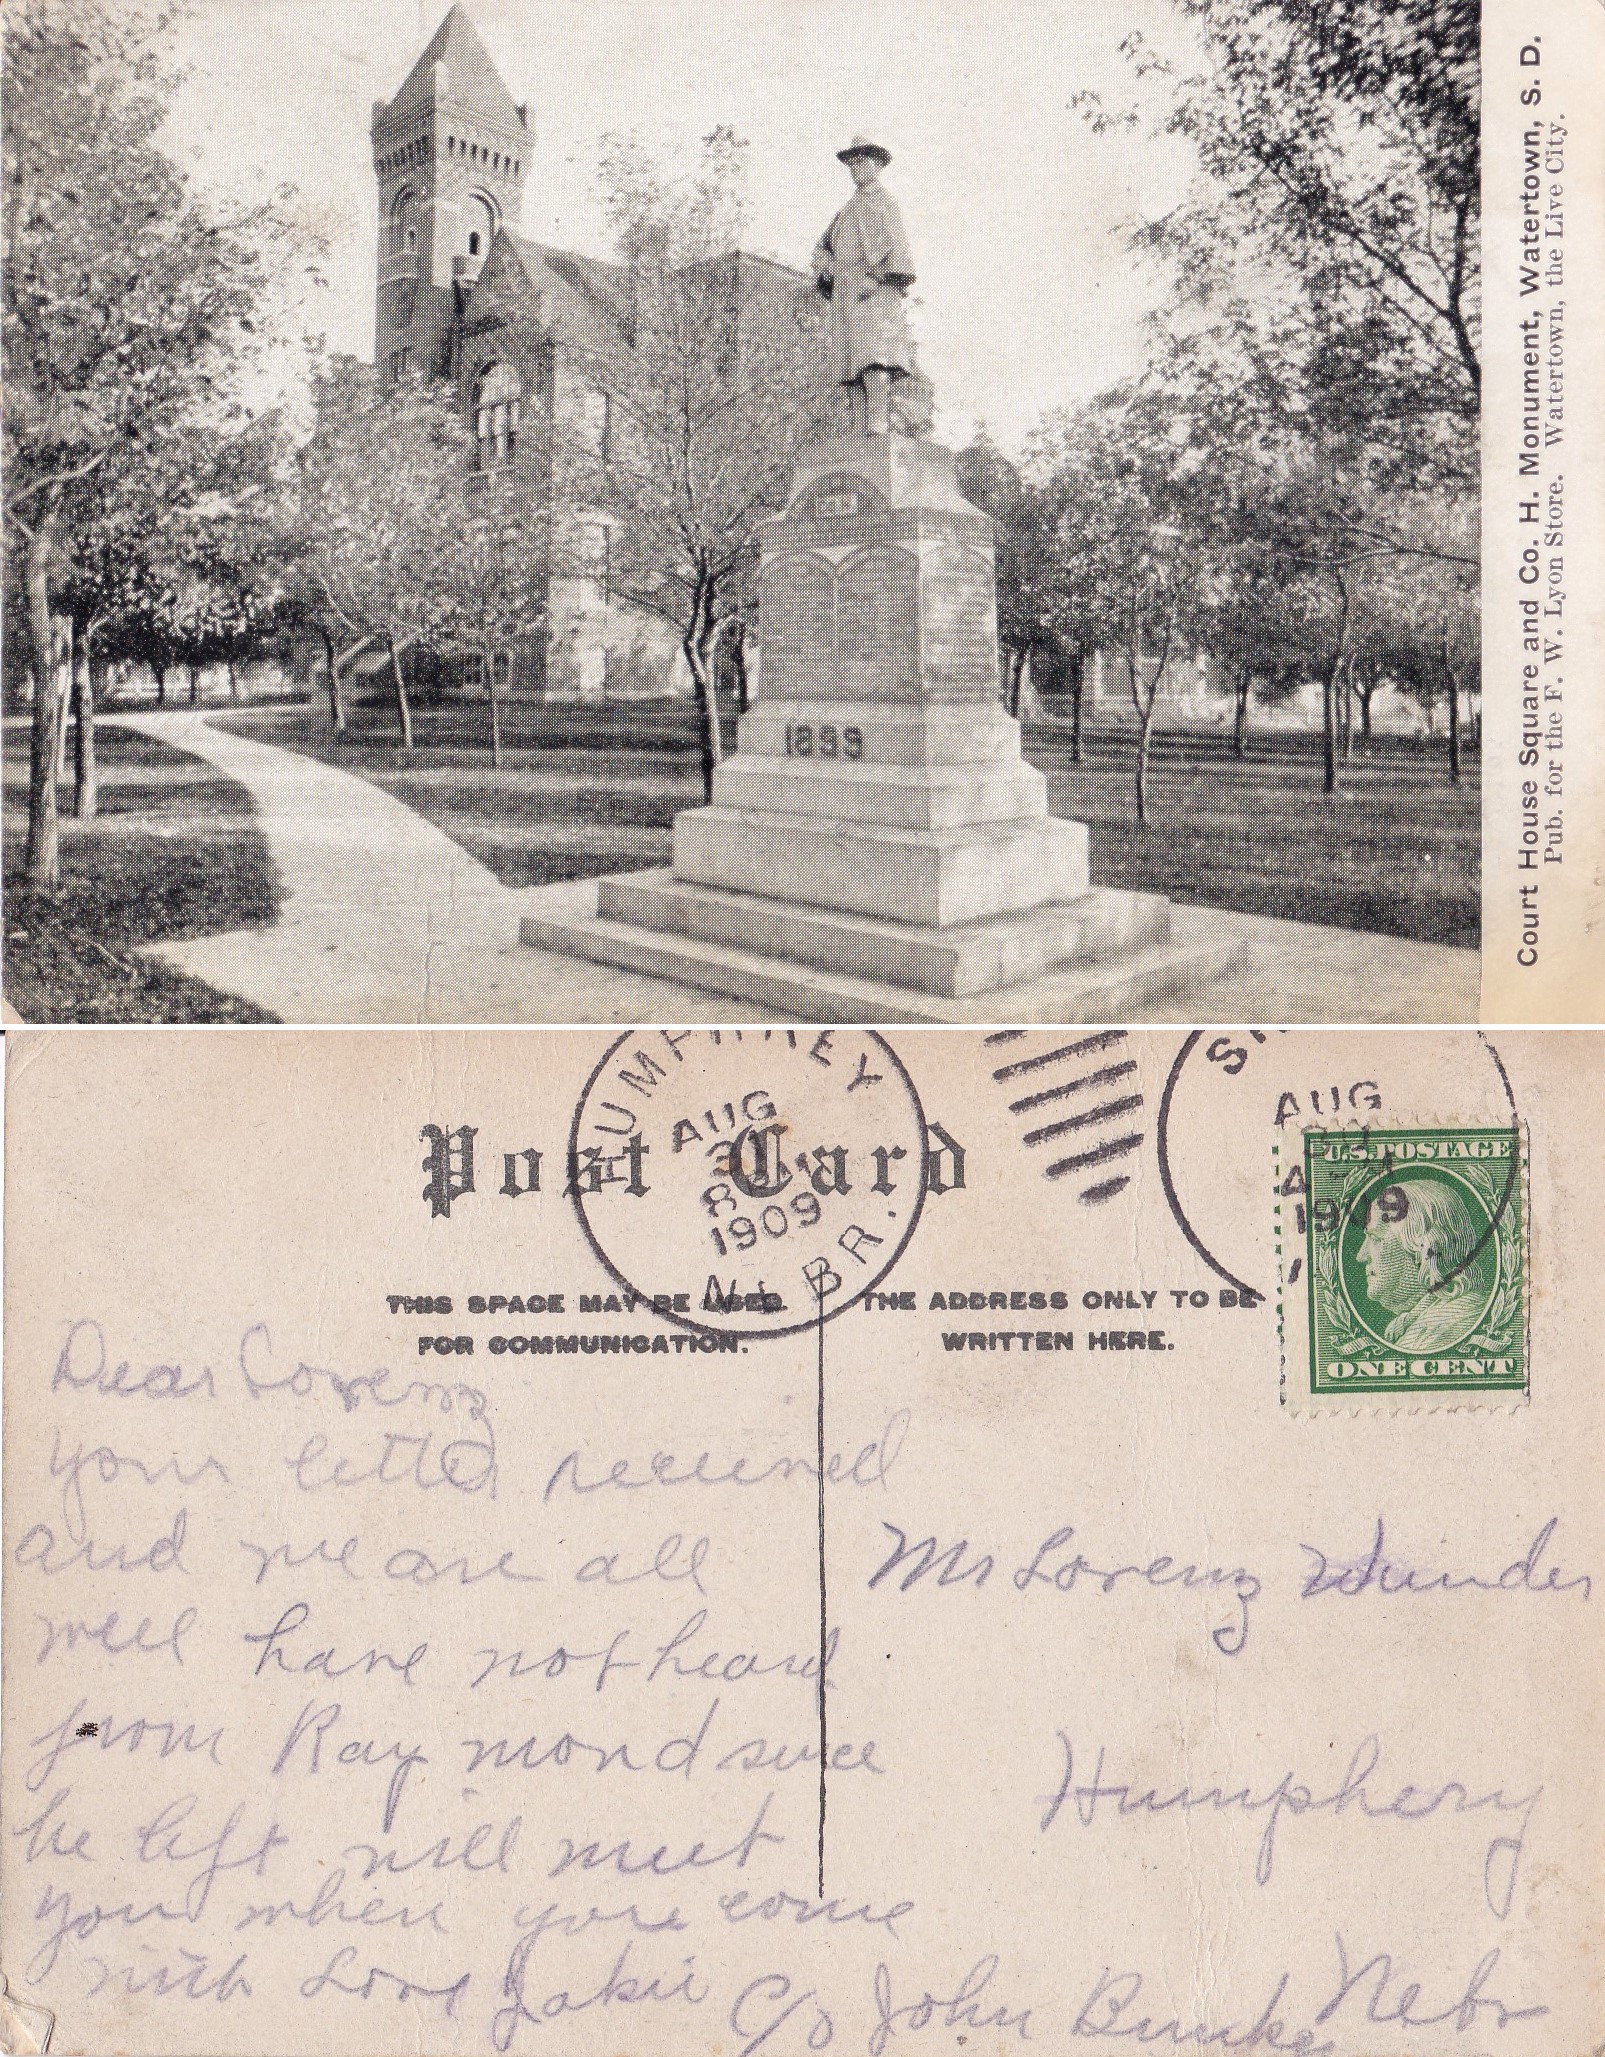 Court House Square and Co. H. Monument, Watertown, S. D.
Pub. for the F. W. Lyon Store. Watertown, the Live City.
1899
HUMPHREY
AUG
31
1909
NEBR.
AUG
1909
Post Card
U.S. POSTAGE
ONE CENT
THIS SPACE MAY BE USED
FOR COMMUNICATION.
THE ADDRESS ONLY TO BE
WRITTEN HERE.
Dear Lorenz
your letter received
and we are all
well have not heard
from Raymond since
he left will meet
you when you come
with Love Jakie
Mr Lorenz Wunder
Humphery
Nebr
C/o John Bunker